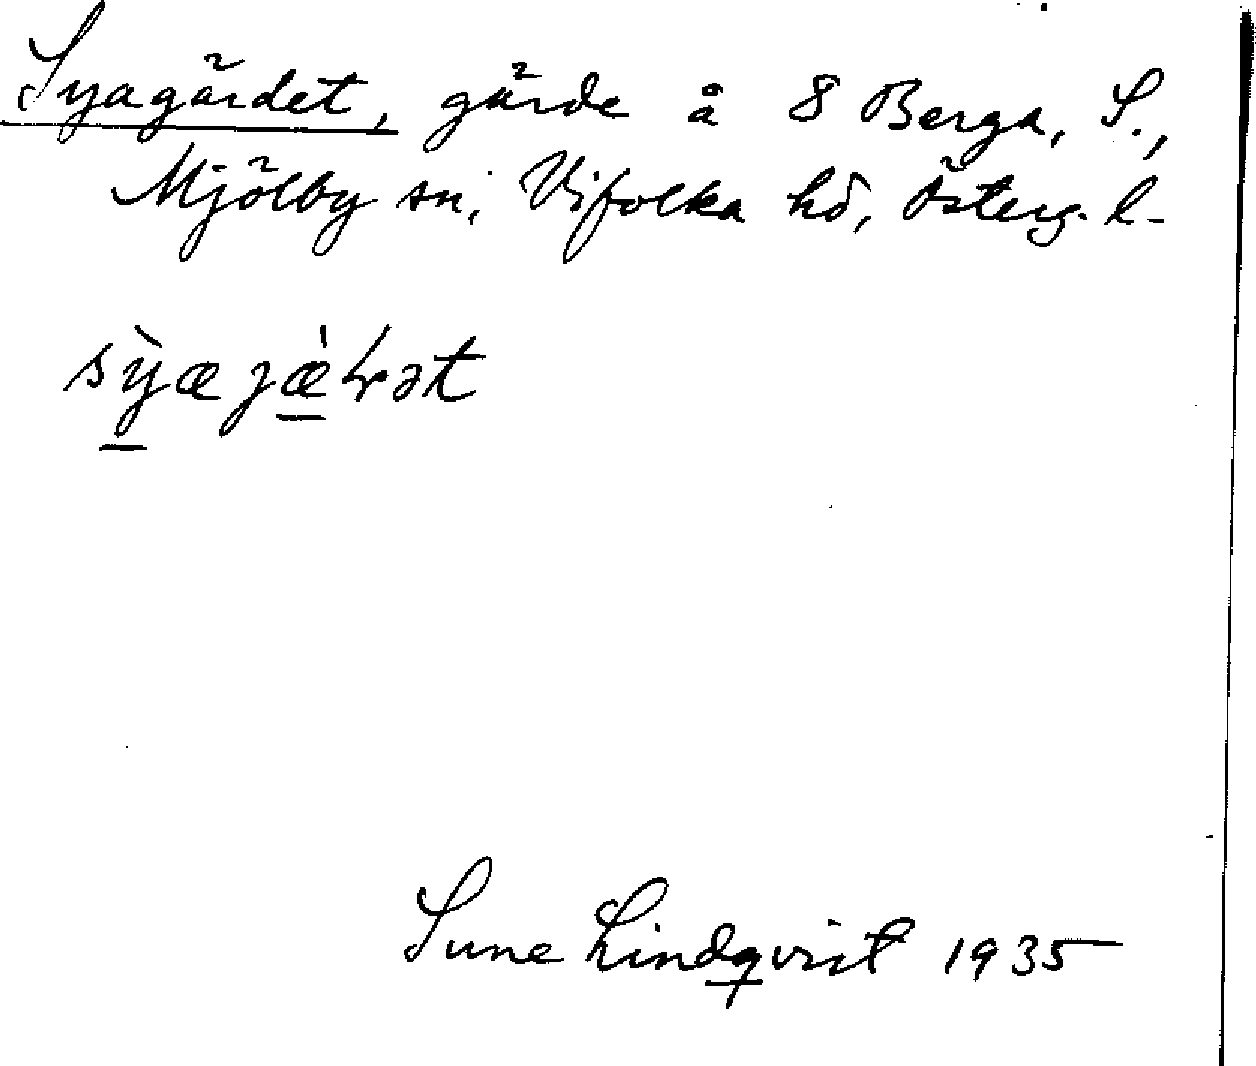 Syagärdet, gärde å 8 Berga, S.,
Mjölby sn, Vifolka hd, Österg. l.
sỳ̱æjæ̱̀ɭət
Sune Lindqvist 1935